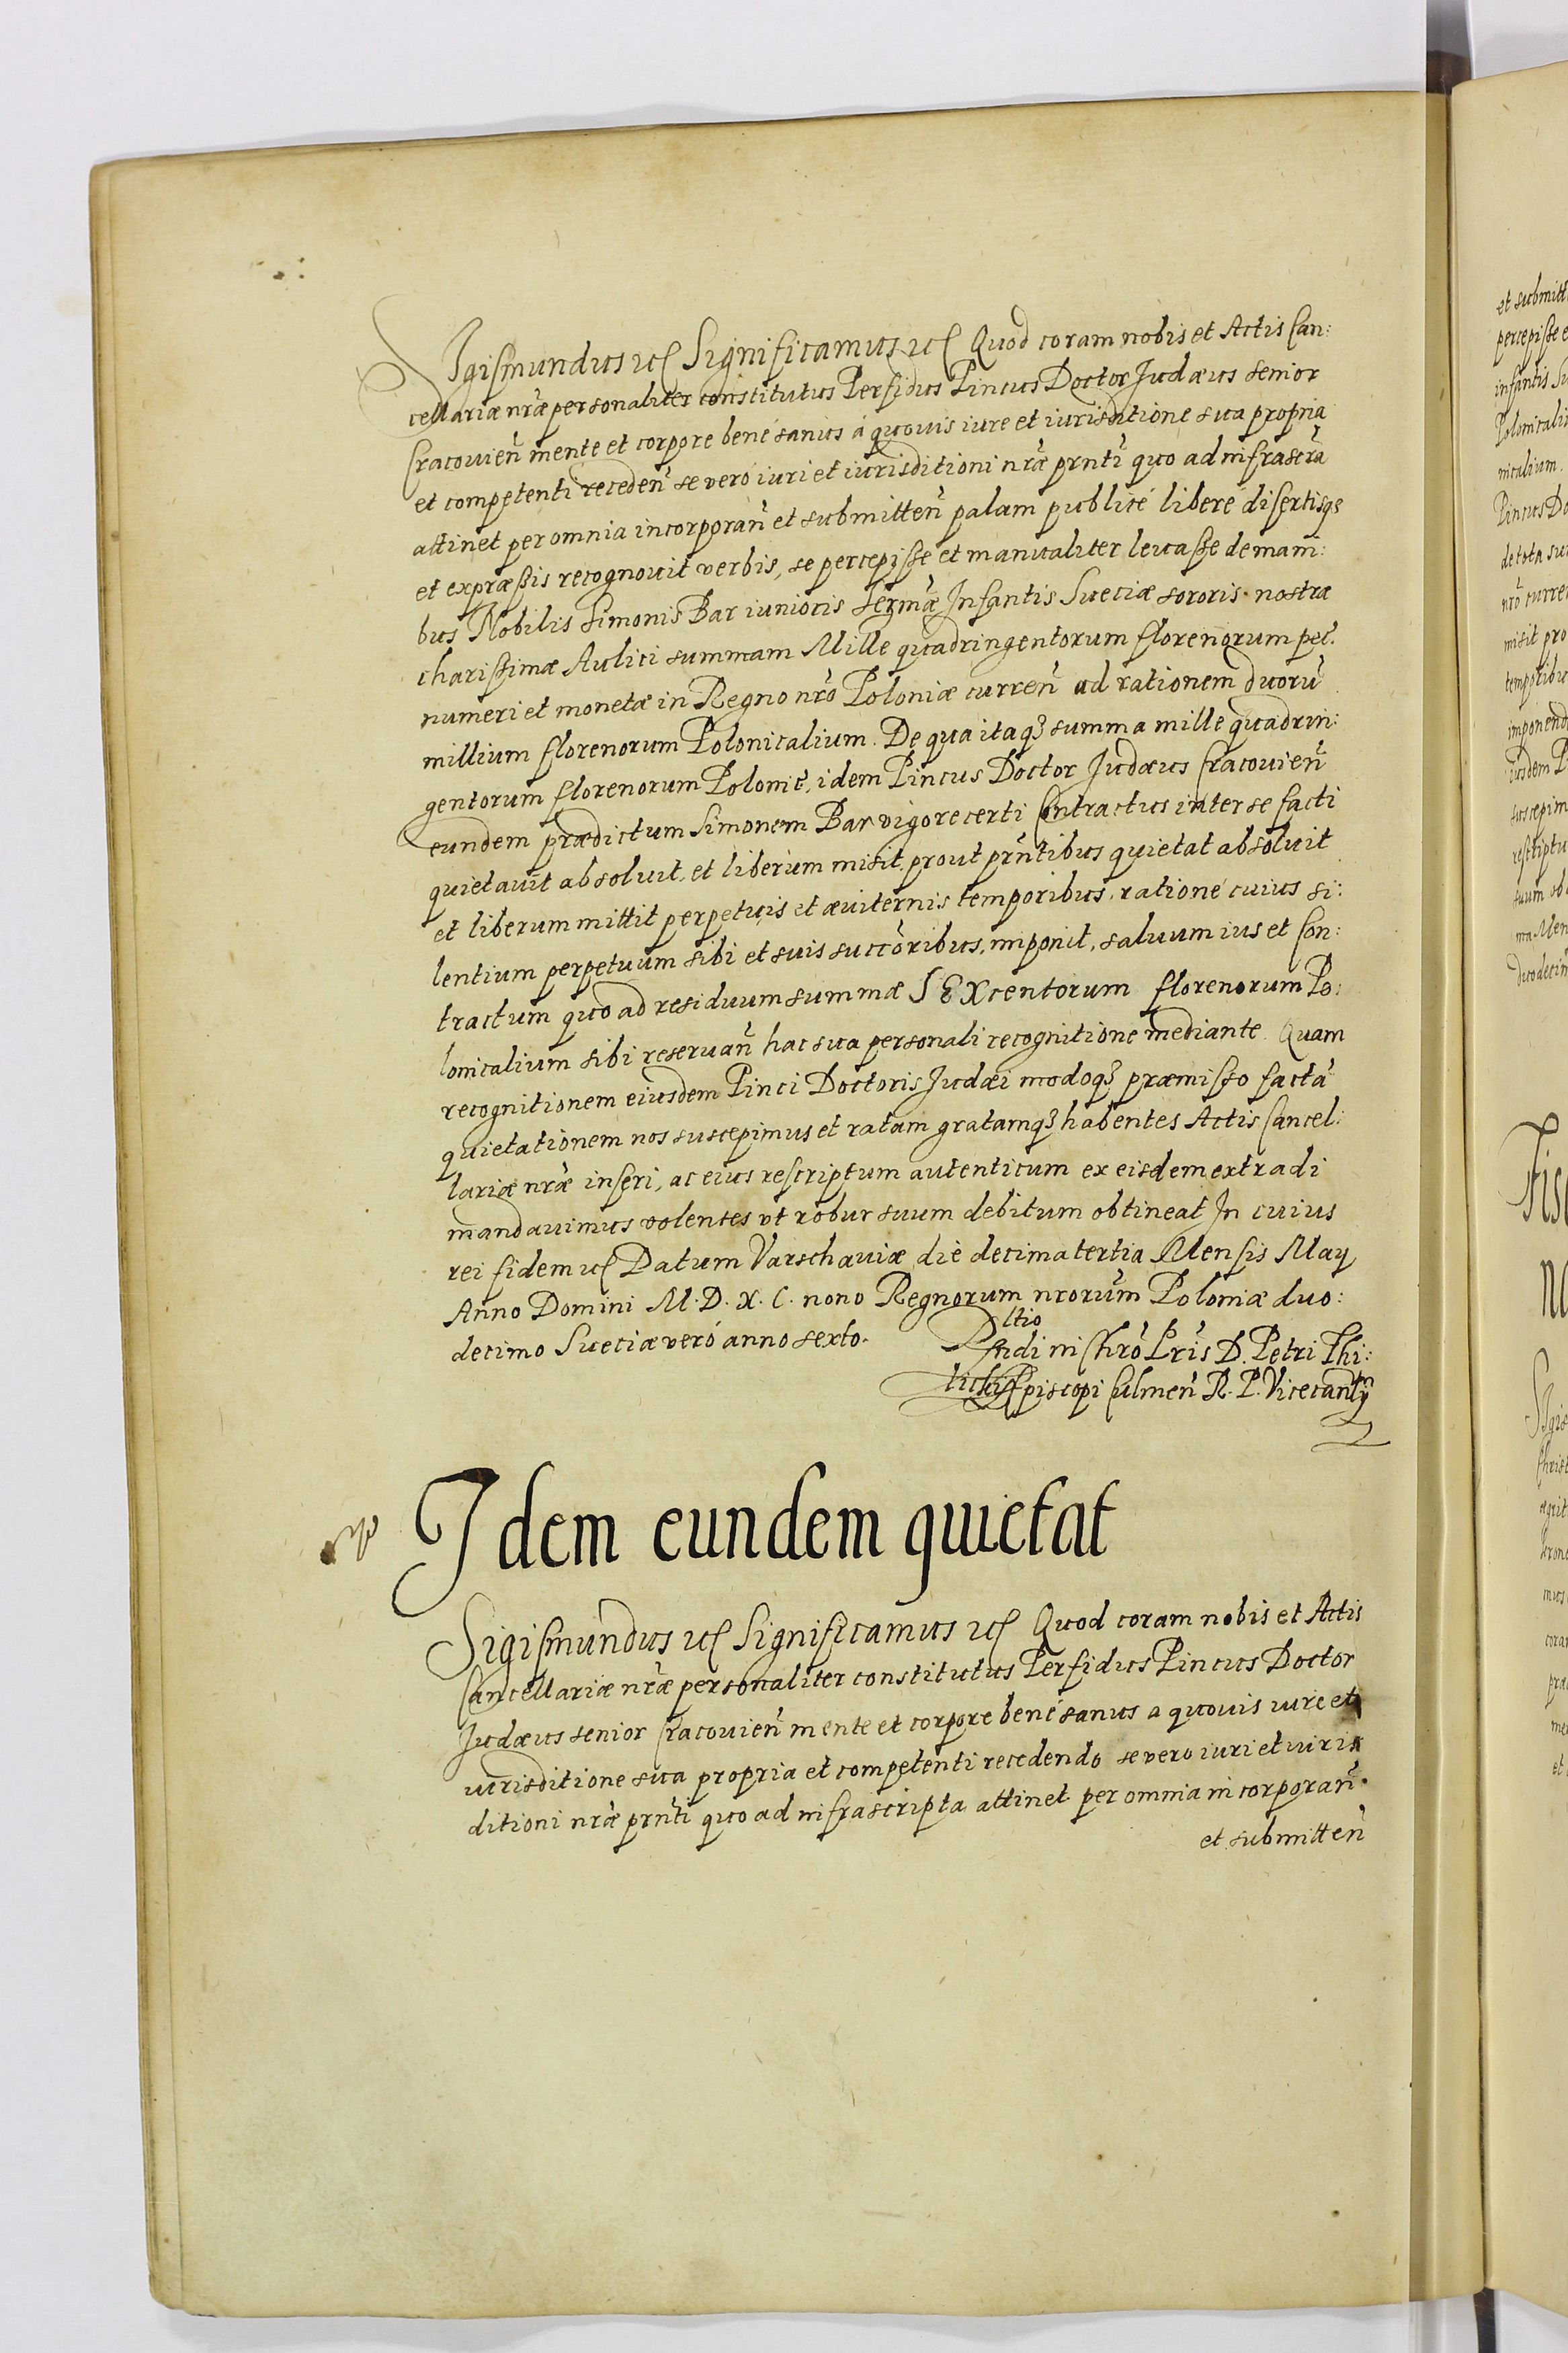 Sigismundus etc Significamus etc Quod coram nobis et Actis Can:
cellariæ nræ personaliter constitutus Perfidus Pincus Doctor Judæus senior
Cracovien̄ mente et corpore bené sanus á quovis iure et iurisditione sua propria
et competenti receden̄ se veró iuri et iurisditioni nræ prnti quo ad infrascra
attinet per omnia incorporan̄ et submitten̄ palam publicé liberé disertisqз
et expræssis recognovit verbis, se percepisse et manualiter levasse de mani:
bus Nobilis Simonis Bar iunioris Sermæ Infantis Sueciæ sororis nostræ
charissimæ Aulici summam Mille quadringentorum florenorum pec.
numeri et monetæ in Regno nro Poloniæ curren̄ ad rationem duorū
millium florenorum Polonicalium. De qua itaqз summa mille quadrin:
gentorum florenorum Polonic, idem Pincus Doctor Judæus Cracovien̄
eundem prædictum Simonem Bar vigore certi Contractus inter se facti
quietavit absolvit, et liberum misit, prout prntibus quietat absolvit
et liberum mittit perpetuis et æviternis temporibus, ratione cuius si:
lentium perpetuum sibi et suis succoribus, imponit, salvum ius et Con:
tractum quo ad residuum summæ SEXcentorum florenorum Po:
lonicalium sibi reservan̄ hac sua personali recognitione mediante. Quam
recognitionem eiusdem Pinci Doctoris Judæi modoqз præmisso factā
quietationem nos suscepimus et ratam gratamqз habentes Actis Cancel:
lariæ nræ inseri, ac eius rescriptum autenticum ex eisdem extradi
mandavimus volentes vt robur suum debitum obtineat In cuius
rei fidem etc Datum Varschaviæ die decima tertia Mensis Maÿ
Anno Domini M. D. X. C. nono Regnorum nrorum Poloniæ duo:
decimo Sueciæ veró anno sexto.
Rltio
Rndi in Chro Pris D. Petri Thi:
licki Episcopi Culmen̄ R. P. Vicecanrÿ
Idem eundem quietat
Sigismundus etc Significamus etc Quod coram nobis et Actis
Cancellariæ nræ personaliter constitutus Perfidus Pincus Doctor
Judæus senior Cracovien̄ mente et corpore bené sanus a quovis iure et
iurisditione sua propria et competenti recedendo se vero iuri et iuris
ditioni nræ prnti quo ad infrascripta attinet per omnia incorporan̄
et submitten̄
et submitt
percepisse e
infantis Su
Polonicaliu
nicalium.
Pincus Do
de tota su
nro curren
misit pro
temporibu
imponend
iusdem P
suscepim
rescriptu
suum ob
ma Men
duodecim
Fisc